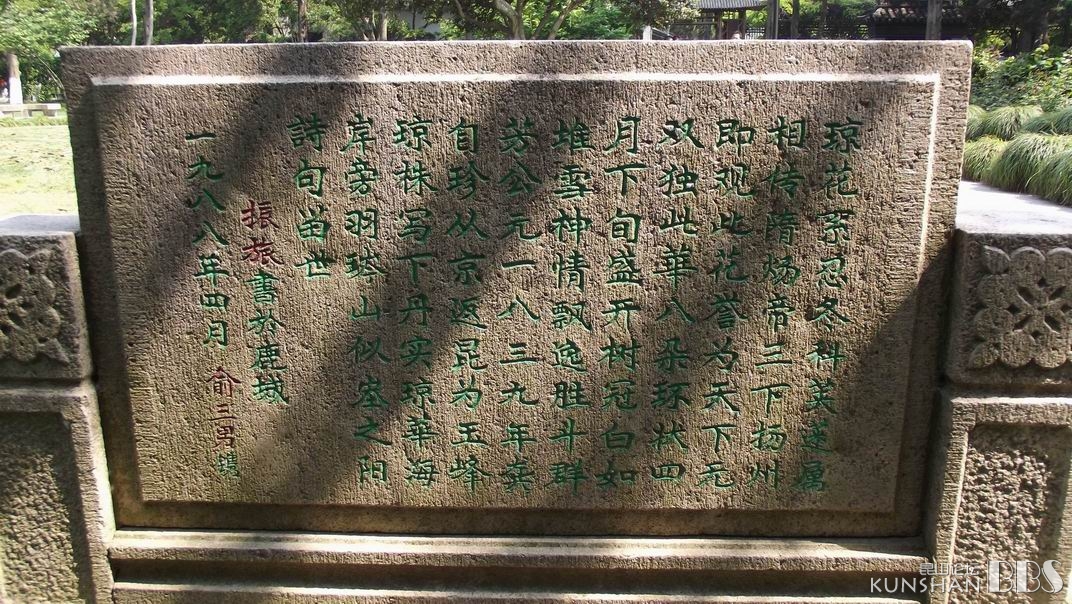 琼花系忍冬科荚蒾属
相传隋炀帝三下扬州
即观此花誉为天下无
双独此華八朵环状四
月下旬盛开树冠白如
堆雪神情飘逸胜斗群
芳公元一八三九年龚
自珍从京返昆为玉峰
琼株写下丹实琼華海
岸旁羽琌山似崟之阳
詩句畄世
振旅書於鹿城
一九八八年四月 俞三男
昆山论坛
KUNSHAN BBS